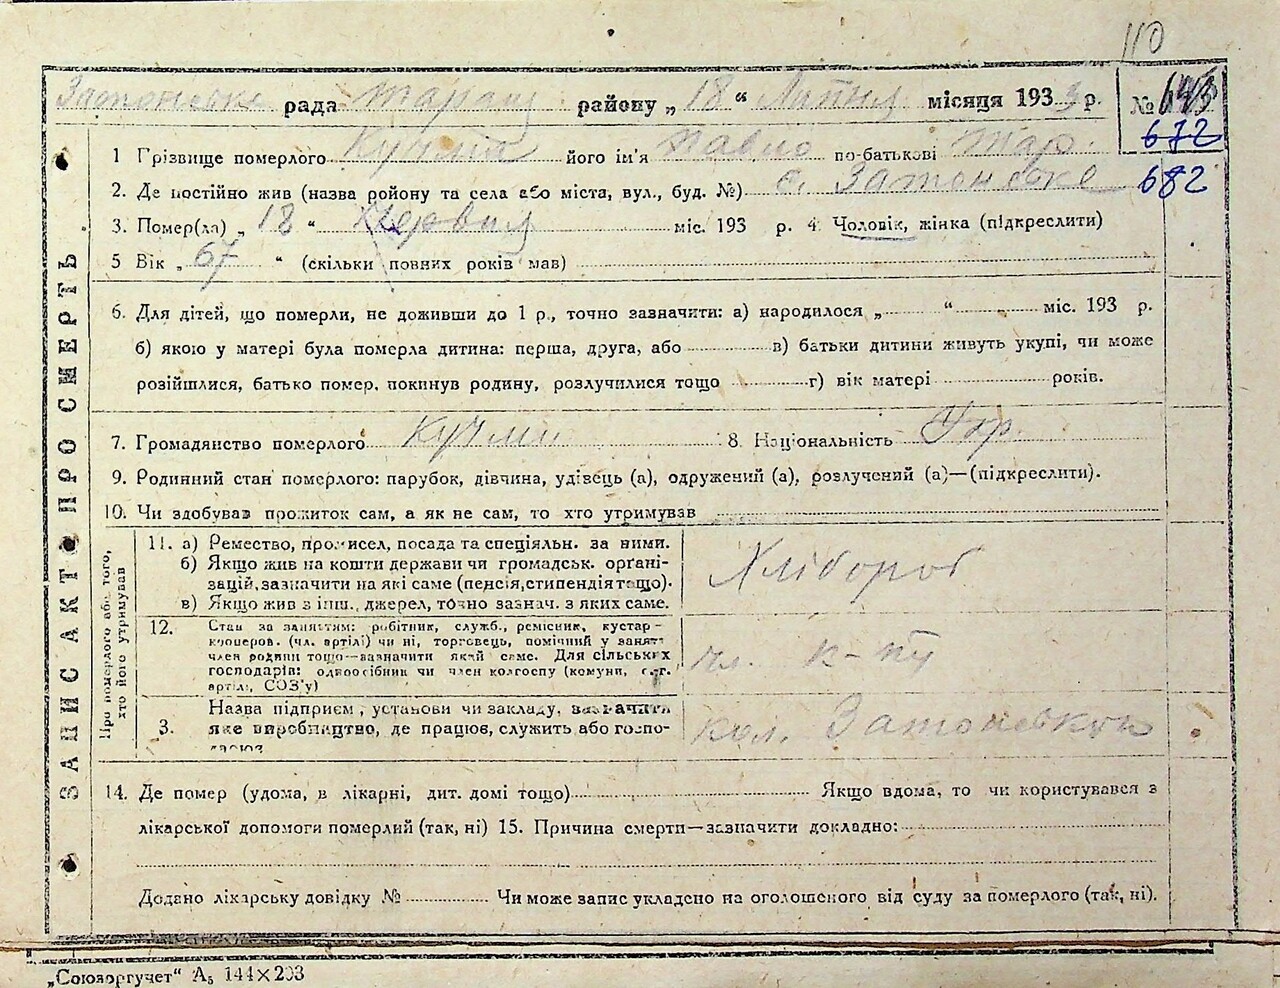 110
рада район у „ 18 “ Липня місяця 1933 р. №
672
1 Грізвище померлого Кучма його ім'я Павло по-батькові Тар.
682
2. Де постійно жив (назваройону та села або міста, вул., буд. №) с. Затонське
3. Помер(ла) „ 18 “ міс. 193 р. 4 Чоловік, жінка (підкреслити)
5 Вік „ 67 “ (скільки повних років мав)
6. Для дітей, що померли, не доживши до 1 р., точно зазначити: а) народилося „ “ міс. 193 р.
б) якою у матері була померла дитина: перша, друга, або в) батьки дитини живуть укупі, чи може
розійшлися, батько помер, покинув родину, розлучилися тощо г) вік матері років.
7. Громадянство померлого 8. Національність Укр.
9. Родинний стан померлого: парубок, дівчина, удівець (а), одружений (а), розлучений (а)—(підкреслити).
10. Чи здобував прожиток сам, а як не сам, то хто утримував
ЗАПИС АКТ ПРО СМЕРТЬ
Про померлого або того,
хто його утримував
11. а) Ремество, промисел, посада та спеціяльн. за ними.
б) Якщо жив на кошти держави чи громадськ. орґані-
зацій, зазначити на які саме (пенсія, стипендія тощо).
в) Якщо жив з інш. джерел, точно зазнач. з яких саме.
Хлібороб
12. Стан за заняттям: робітник, служб., ремісник, кустар-
кооперов. (чл. артілі) чи ні, торговець, помічний у занят.
член родини тощо—зазначити який саме. Для сільських
господарів: одноосібник чи член колгоспу (комуни, с.-г.
артілі, СОЗ'у)
чл. к-пу
3. Назва підприєм., установи чи закладу, зазначити
яке виробництво, де працює, служить або госпо-
кол.
14. Де помер (удома, в лікарні, дит. домі тощо) Якщо вдома, то чи користувався з
лікарської допомоги померлий (так, ні) 15. Причина смерти—зазначити докладно:
Додано лікарську довідку № Чи може запис укладено на оголошеного від суду за померлого (так, ні).
„Союзоргучет“ А₅ 144×203